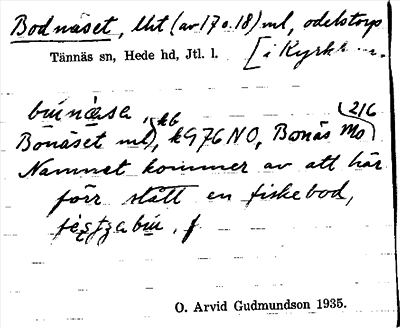 Bodnäset, lht (av 17 o. 18) ml, odelstorp
Tännäs sn, Hede hd, Jtl. l. [i Kyrkb
bu̇nä̀sa
Bonäset ml), kb, k976 NO, Bonäs Mo 216)
Namnet kommer av att här
förr stått en fiskebod,
f
O. Arvid Gudmundson 1935.